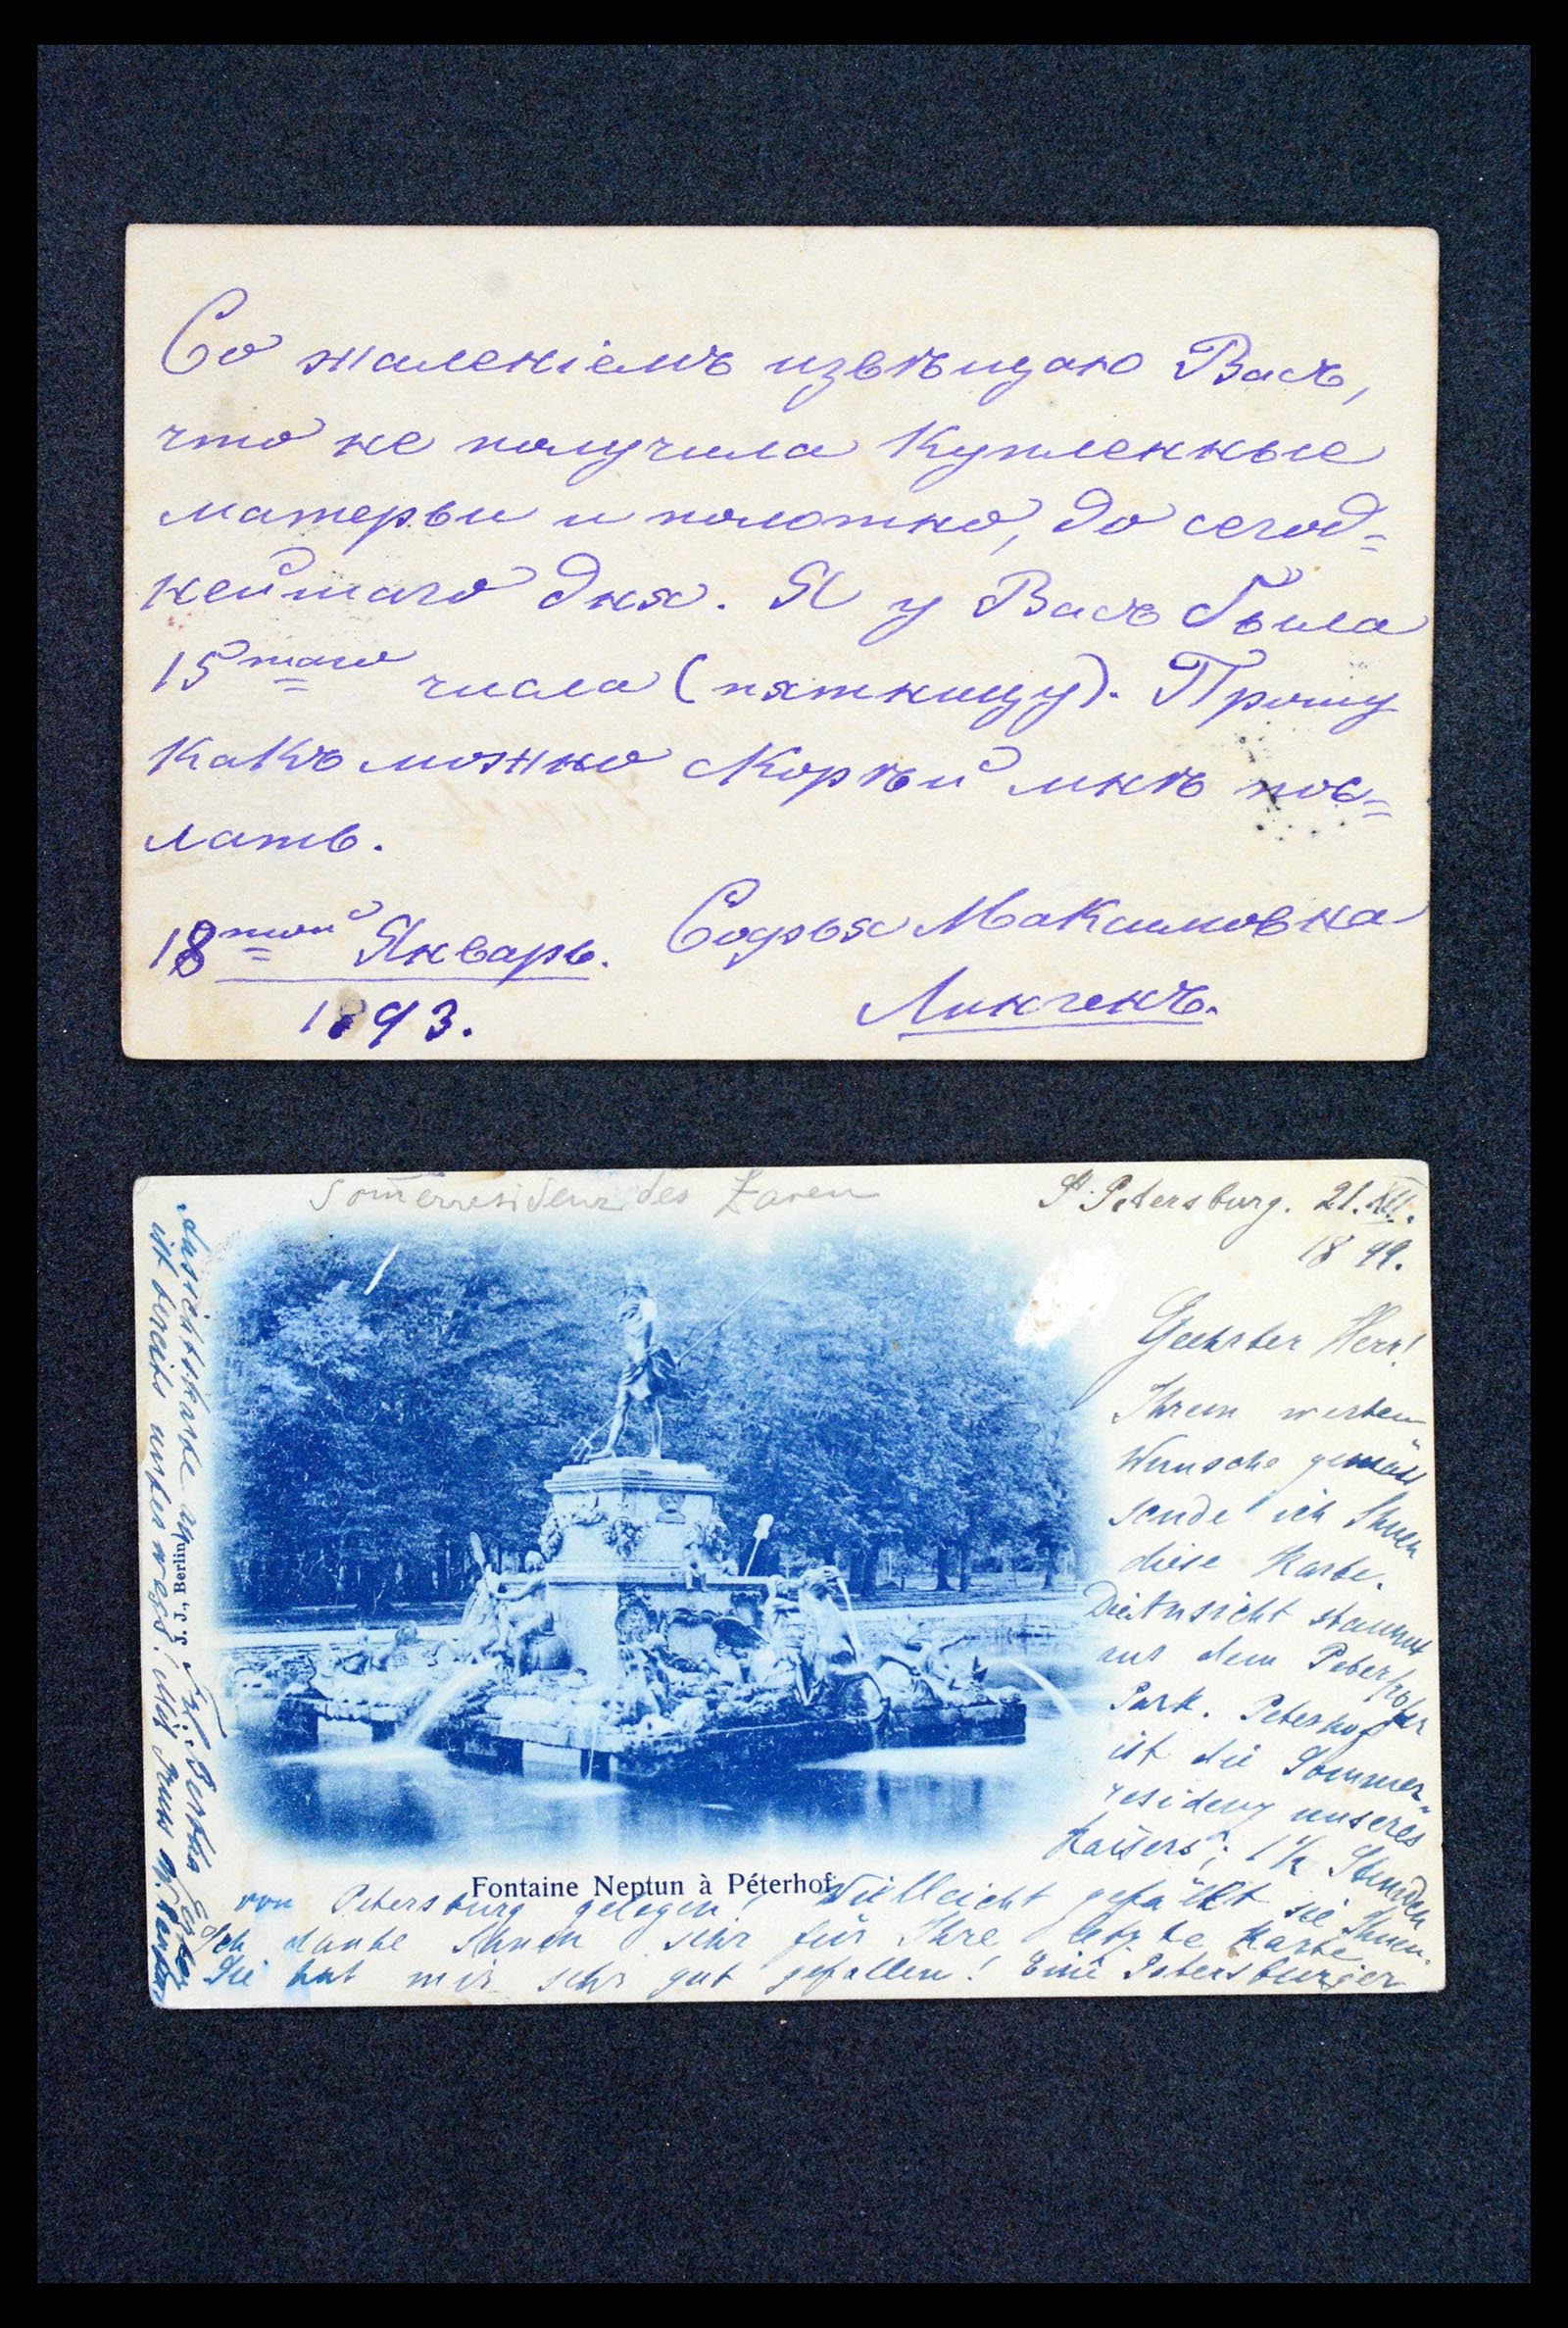 Со жаленіемъ извѣщаю Васъ,
что не получила купленные
матерьи и полотно, до сегод=
нейшаго дня. Я у Васъ была
15таго числа (пятницу). Прошу
какъ можно скорѣй мнѣ пос=
лать.
18той Январь. Софья Максимовна
1893. Линченъ.
Somerresidenz des Zaren
St. Petersburg. 21.XII.
1899.
Geehrter Herr!
Ihrem werten
Wunsche gemäss
sende ich Ihnen
diese Karte.
Die Ansicht stammt
aus dem Peterhofer
Park. Peterhof
ist die Sommer-
residenz unseres
Kaisers; 1½ Stunden
Fontaine Neptun à Péterhof
von Petersburg gelegen! Vielleicht gefällt sie Ihnen.
Ich danke Ihnen sehr für Ihre letzte Karte
Sie hat mir sehr gut gefallen! Eine Petersburger
Ansichtskarte
ist bereits unterwegs! Mit Gruss
J. J., Berlin
Frl. Bertha